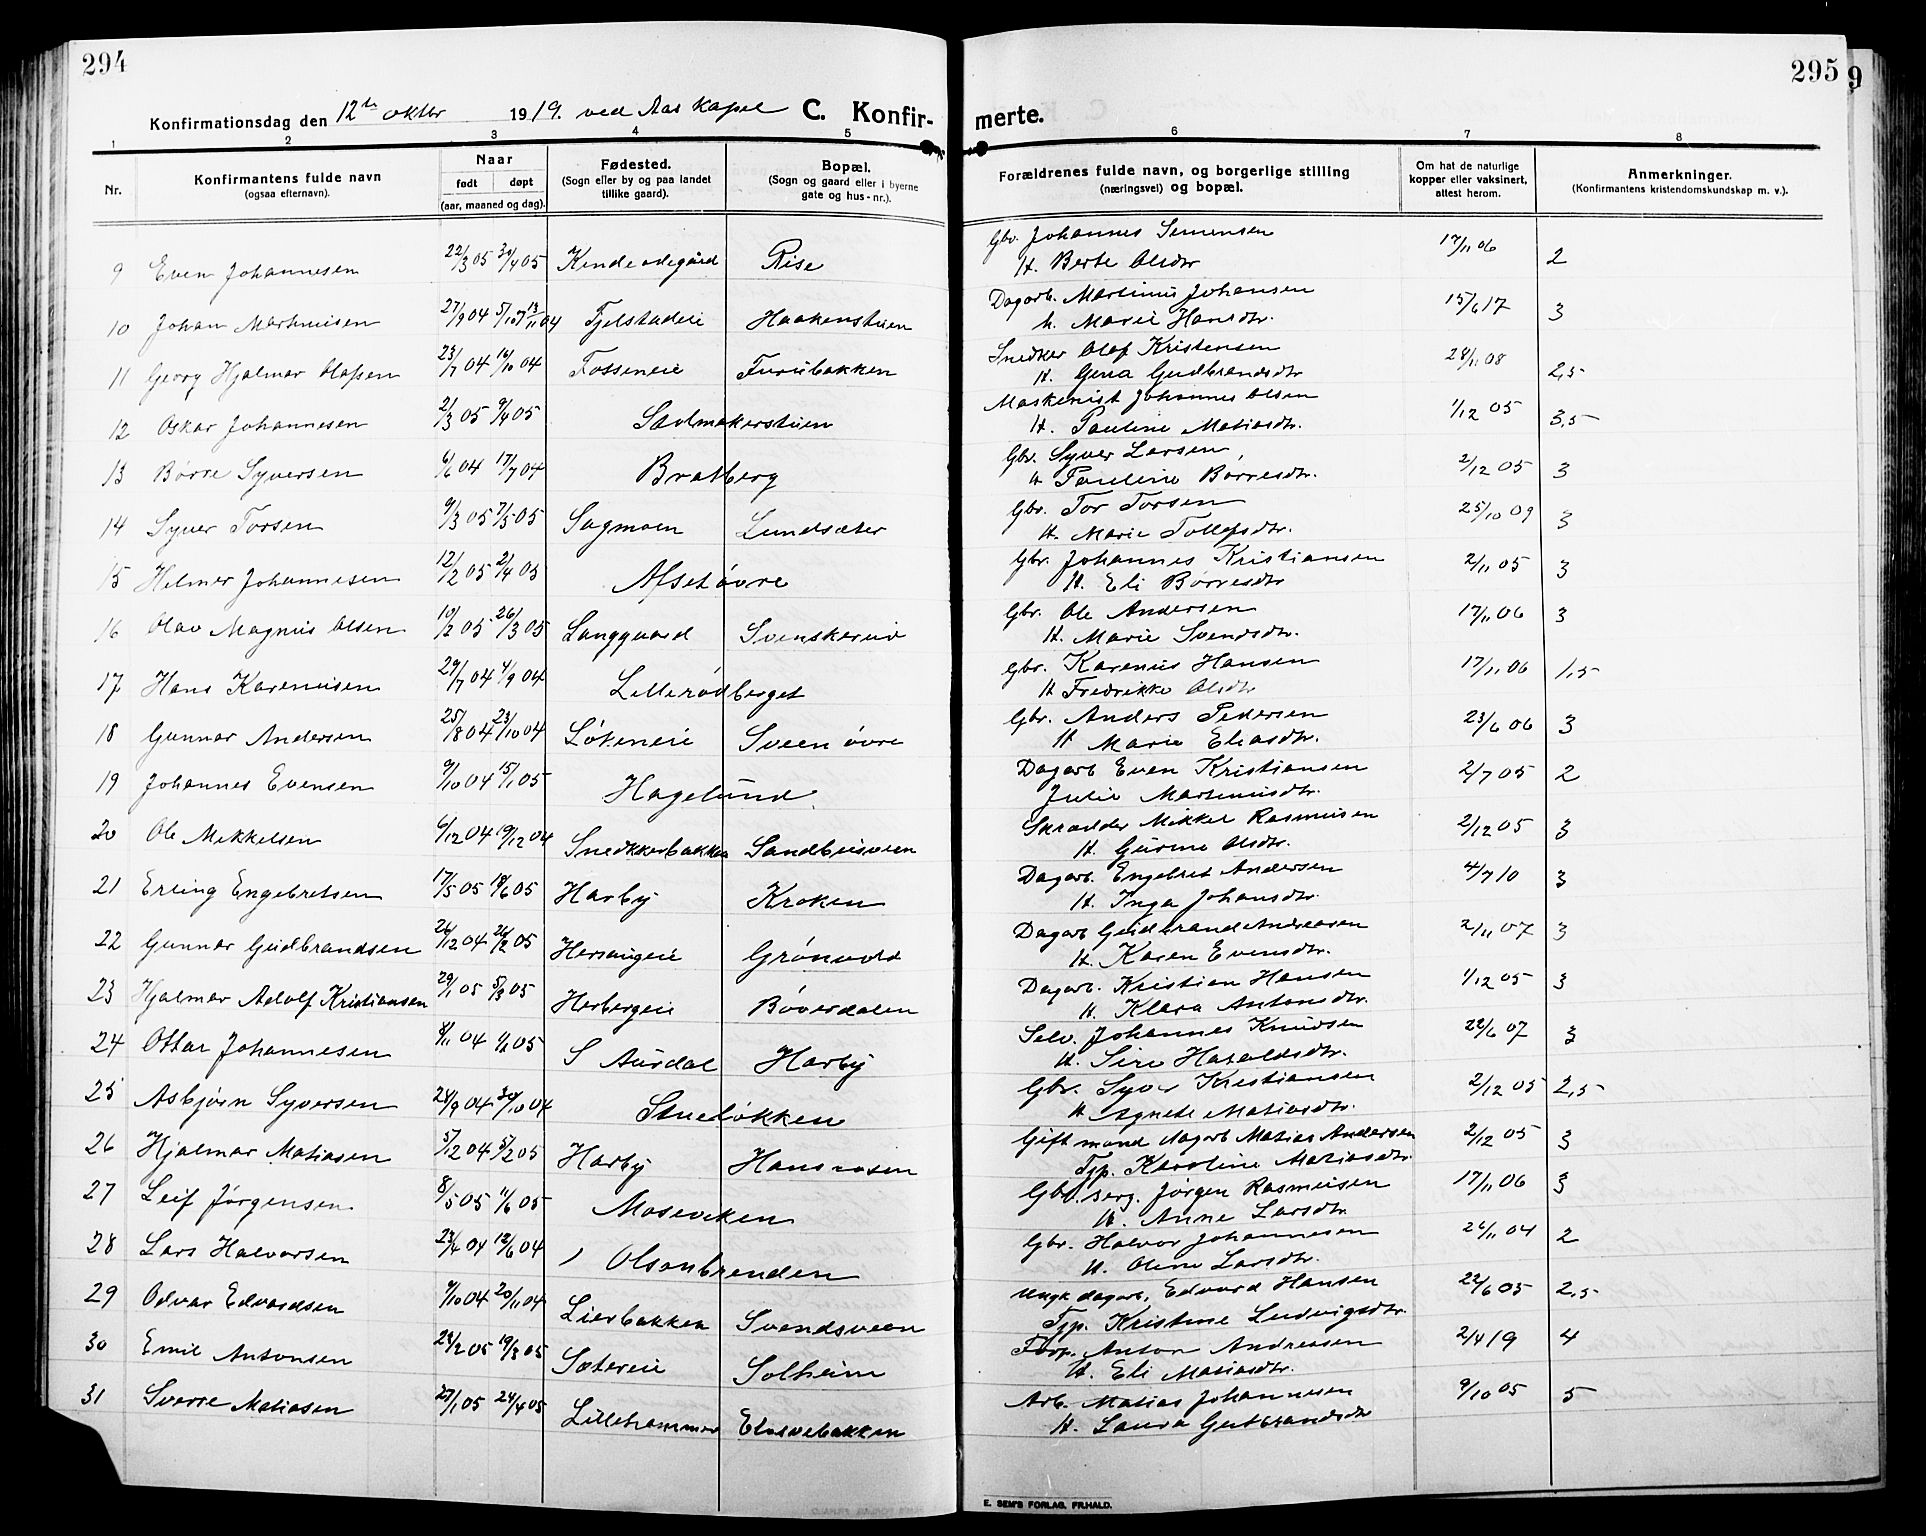 294
295
9
Konfirmationsdag den 12te oktbr 1919. ved Aas kapel C. Konfir- merte.
1 2 3 4 5 6 7 8
Nr.
Konfirmantens fulde navn
(ogsaa efternavn).
Naar
født døpt
(aar, maaned og dag).
Fødested.
(Sogn eller by og paa landet
tillike gaard).
Bopæl.
(Sogn og gaard eller i byerne
gate og hus-nr.).
Forældrenes fulde navn, og borgerlige stilling
(næringsvei) og bopæl.
Om hat de naturlige
kopper eller vaksinert,
attest herom.
Anmerkninger.
(Konfirmantens kristendomskundskap m. v.).
9 Even Johannesen 22/3 05 30/4 05 Rise Gbr. Johannes Simensen 17/11 06 2
H. Berte Olsdtr
10 Johan Martinusen 27/9 04 Fjelstadeie Haakenstuen Dagarb. Martinus Johansen 15/6 17 3
h. Marie Hansdtr.
11 Georg Hjalmar Olafsen 23/7 04 16/10 04 Fosseneie Furubakken Snedker Olaf Kristensen 28/11 08 2,5
H. Gina Gudbrandsdtr
12 Oskar Johannesen 2/3 05 9/4 05 Stolmakerstuen Maskenist Johannes Olsen 1/12 05 3,5
H. Pauline Matiasdtr.
13 Børre Syversen 6/6 04 17/7 04 Bratberg Gbr. Syver Larsen 2/12 05 3
H Pauline Børresdtr.
14 Syver Torsen 9/3 05 7/5 05 Sagmoen Lundsæter Gbr. Tor Torsen 25/10 09 3
H. Marie Tollefsdtr.
15 Helmer Johannesen 12/2 05 2/4 05 Afset øvre Gbr. Johannes Kristiansen 2/11 05 3
H. Eli Børresdtr
16 Olav Magnus Olsen 10/2 05 26/3 05 Langgaard Gbr. Ole Andersen 17/11 06 3
H. Marie Svendsdtr.
17 Hans Karenusen 29/7 04 4/9 04 Lillerødberget Gbr. Karenus Hansen 17/11 06 1,5
H Fredrikke Olsdtr
18 Gunnar Andersen 25/8 04 23/10 04 Løkeneie Sveen øvre Gbr. Anders Pedersen 23/6 06 3
H Marie Eliasdtr.
19 Johannes Evensen 9/10 04 15/1 05 Hagelund. Dagarb Even Kristiansen 2/7 05 2
Julie Martinusdtr.
20 Ole Mikkelsen 6/12 04 19/12 04 Snedkkerbakken Sandbusveen Skrædder Mikkel Rasmusen 2/12 05 3
H. Gurine Olsdtr.
21 Erling Engebretsen 17/5 05 18/6 05 Harby Kroken Dagarb. Engebret Andersen 4/7 10 3
H. Inga Johansdtr.
22 Gunnar Gudbrandsen 26/12 04 26/2 05 Hersaugeie Grønvold Dagarb Gudbrand Andreasen 2/11 07 3
H. Karen Evensdtr.
23 Hjalmar Adolf Kristiansen 29/1 05 5/3 05 Herbergeie Bøverdalen Dagarb. Kristian Hansen 1/12 05 3
H. Klara Antonsdtr.
24 Ottar Johannesen 8/11 04 S Aurdal Harby Selv. Johannes Knudsen 22/6 07 3
H. Siri Haraldsdtr.
25 Asbjørn Syversen 28/9 04 30/10 04 Stueløkken Gbr. Syver Kristiansen 2/12 05 2,5
H Agnete Matiasdtr.
26 Hjalmar Matiasen 5/12 04 5/2 05 Harby Hansmoen Gift mand dagarb Matias Andersen 2/12 05 3
Tjp. Karoline Matiasdtr.
27 Leif Jørgensen 8/5 05 11/6 05 Moseviken Gbr. serg. Jørgen Rasmusen 17/11 06 3
H. Anne Larsdtr
28 Lars Halvorsen 23/4 04 12/6 04 Olsenbrenden Gbr. Halvor Johannesen 26/11 04 2
H. Oline Larsdtr.
29 Odvar Edvardsen 9/10 04 20/11 04 Lierbakken Svendsveen Ungk dagarb. Edvard Hansen 22/6 05 2,5
Tjp. Kristine Ludvigsdtr.
30 Emil Antonsen 23/2 05 19/3 05 Sætereie Solheim Forp. Anton Andreasen 2/4 19 4
H. Eli Matiasdtr.
31 Sverre Matiasen 27/1 05 24/4 05 Lillehammer Arb. Matias Johannesen 9/10 05 5
H. Laura Gudbrandsdtr
E. SEM'S FORLAG, FR.HALD.